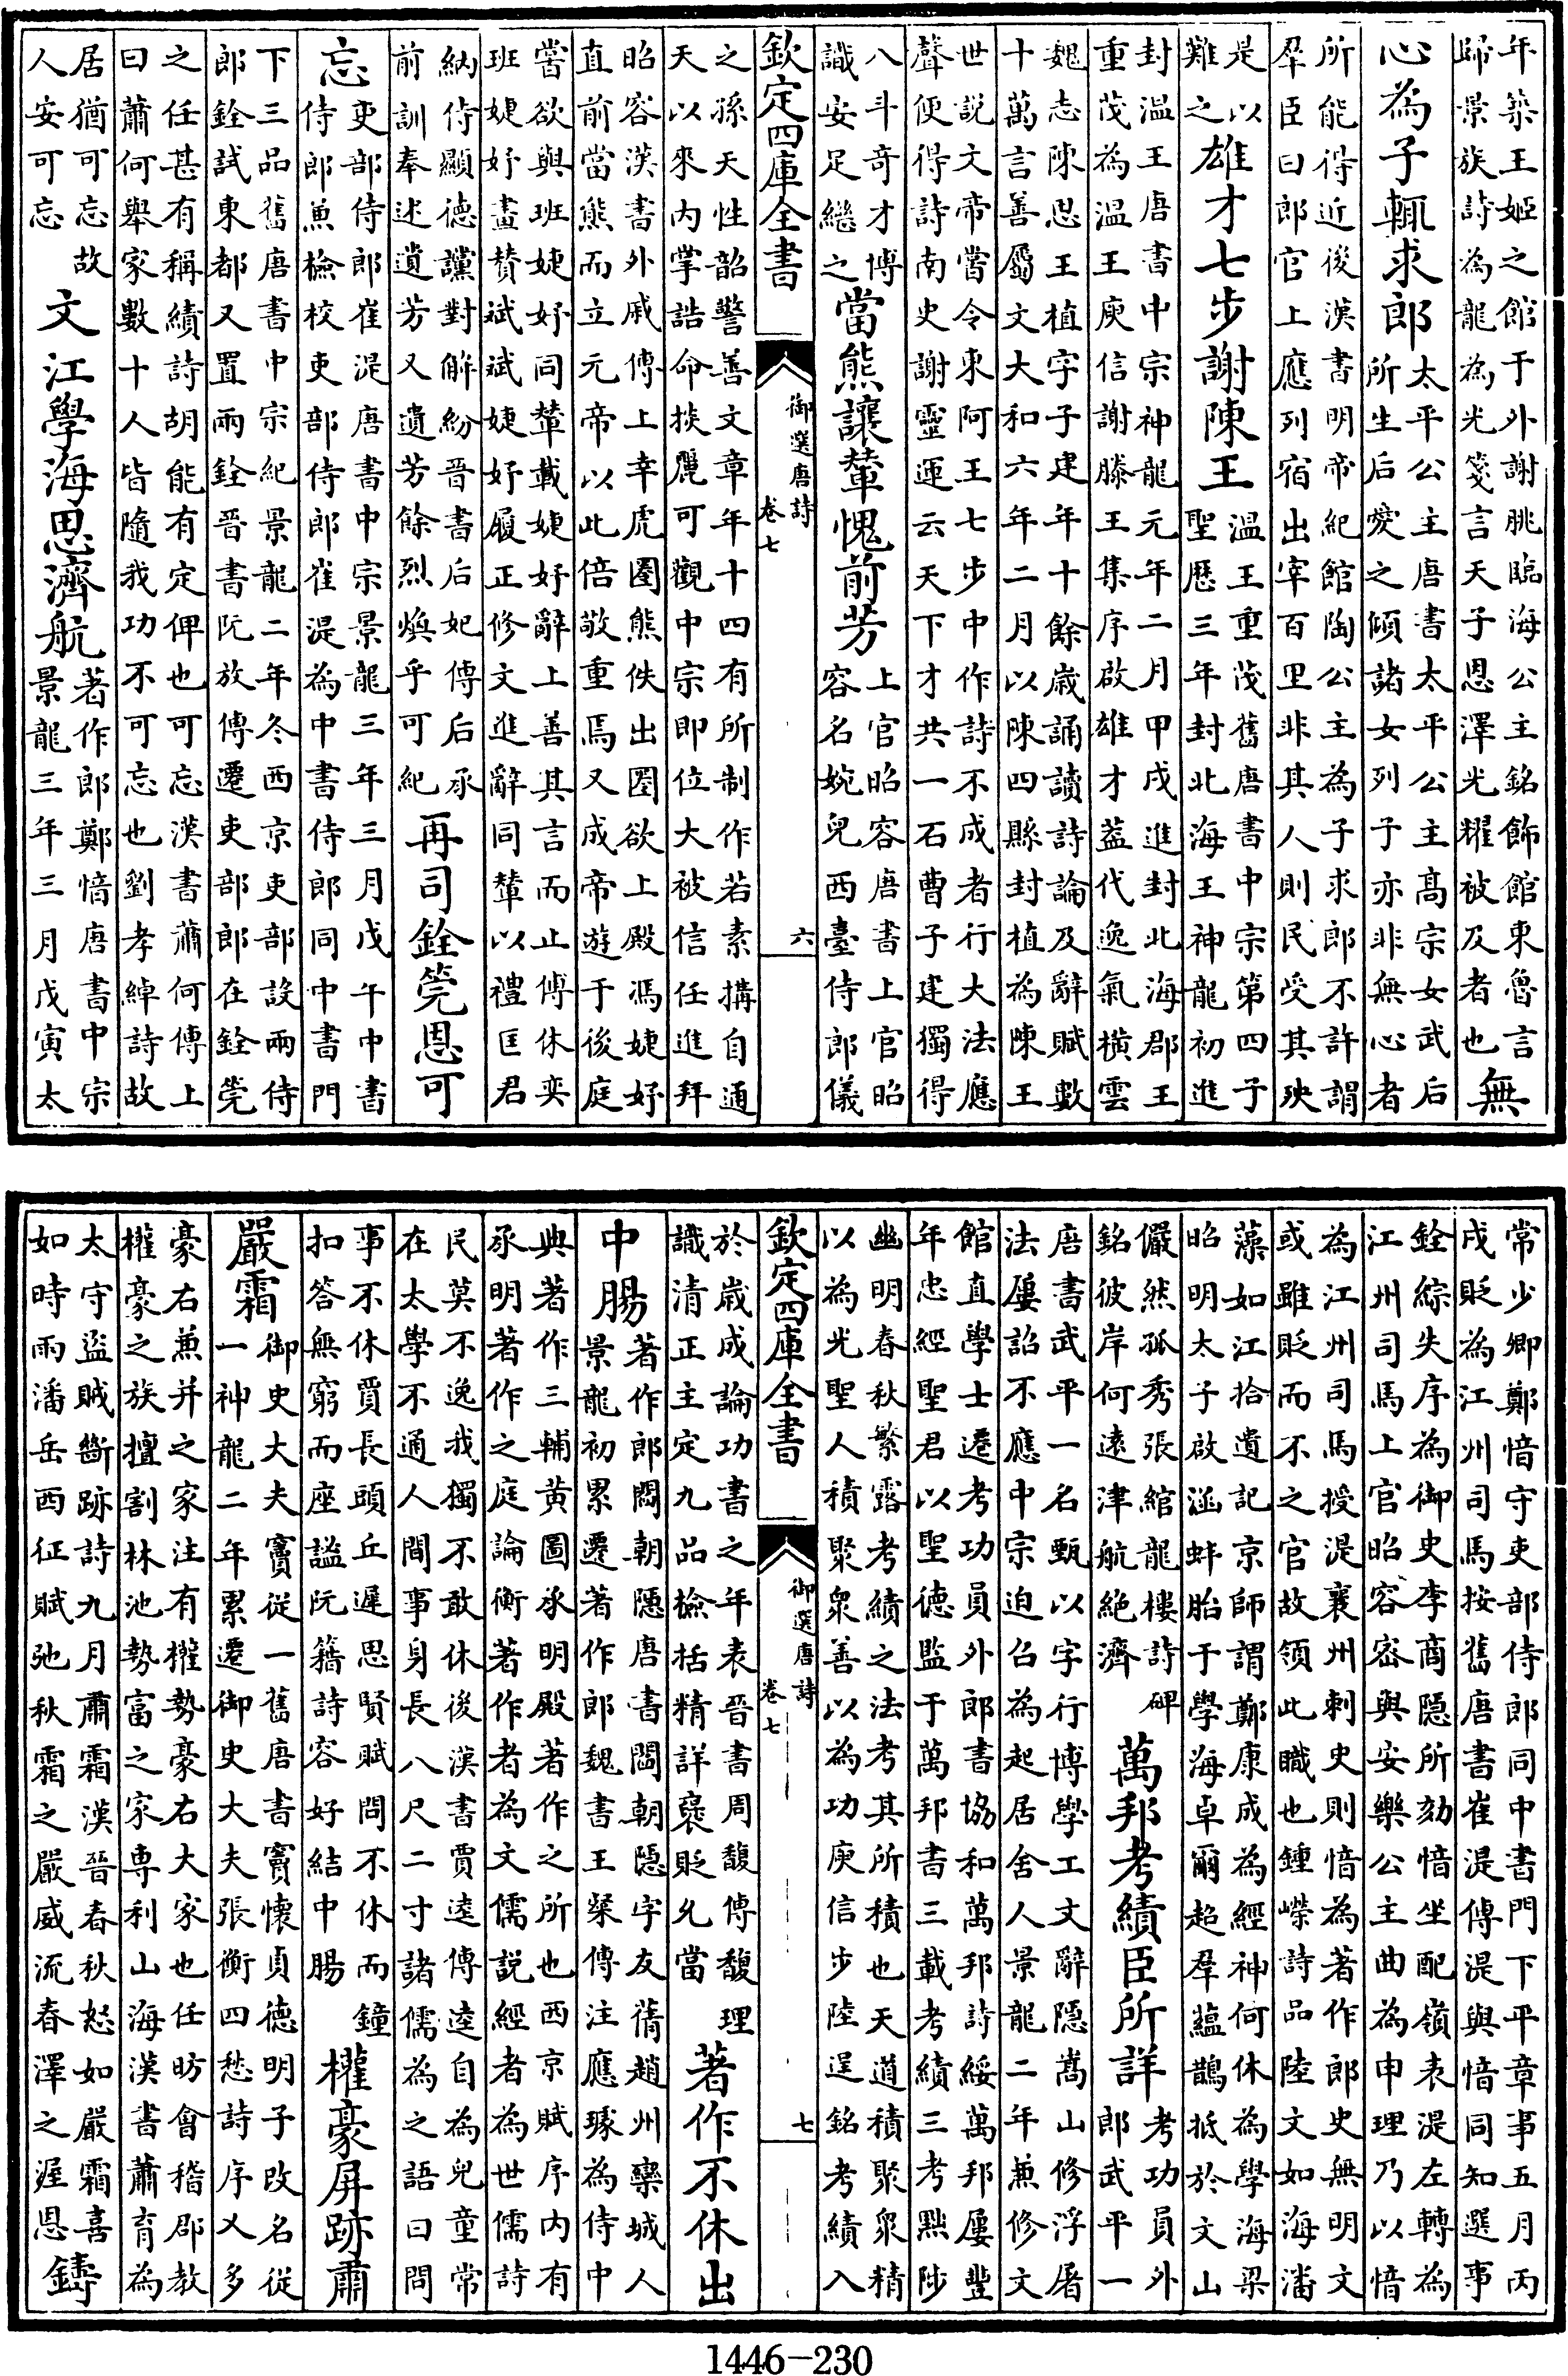 年築王姬之館于外謝朓臨海公主銘飾館東魯言
歸景族詩為龍為光箋言天子恩澤光耀被及者也
無
心為子輒求郎
太平公主唐書太平公主高宗女武后
所生后愛之傾諸女列子亦非無心者
所能得近後漢書明帝紀館陶公主為子求郎不許謂
羣臣曰郎官上應列宿出宰百里非其人則民受其殃
是以
難之
雄才七步謝陳王
温王重茂舊唐書中宗第四子
聖歷三年封北海王神龍初進
封温王唐書中宗神龍元年二月甲戌進封北海郡王
重茂為温王庾信謝滕王集序啟雄才葢代逸氣橫雲
魏志陳思王植字子建年十餘歲誦讀詩論及辭賦數
十萬言善屬文大和六年二月以陳四縣封植為陳王
世説文帝嘗令東阿王七步中作詩不成者行大法應
聲便得詩南史謝靈運云天下才共一石曹子建獨得
八斗奇才博
識安足繼之
當熊讓輦愧前芳
上官昭容唐書上官昭
容名婉兒西臺侍郎儀
欽定四庫全書
御選唐詩
卷七
六
之孫天性韶警善文章年十四有所制作若素搆自通
天以來内掌誥命掞麗可觀中宗即位大被信任進拜
昭容漢書外戚傳上幸虎圈熊佚出圈欲上殿馮婕妤
直前當熊而立元帝以此倍敬重焉又成帝遊于後庭
嘗欲與班婕妤同輦載婕妤辭上善其言而止傅休奕
班婕妤畫賛斌斌婕妤履正修文進辭同輦以禮匡君
納侍顯德讜對解紛晋書后妃傳后承
前訓奉述遺芳又遺芳餘烈煥乎可紀
再司銓筦恩可
忘
吏部侍郎崔湜唐書中宗景龍三年三月戊午中書
侍郎兼檢校吏部侍郎崔湜為中書侍郎同中書門
下三品舊唐書中宗紀景龍二年冬西京吏部設兩侍
郎銓試東都又置兩銓晋書阮放傳遷吏部郎在銓筦
之任甚有稱績詩胡能有定俾也可忘漢書蕭何傳上
曰蕭何舉家數十人皆隨我功不可忘也劉孝綽詩故
居猶可忘故
人安可忘
文江學海思濟航
著作郎鄭愔唐書中宗
景龍三年三月戊寅太
常少卿鄭愔守吏部侍郎同中書門下平章事五月丙
戌貶為江州司馬按舊唐書崔湜傳湜與愔同知選事
銓綜失序為御史李商隱所劾愔坐配嶺表湜左轉為
江州司馬上官昭容宻與安樂公主曲為申理乃以愔
為江州司馬授湜襄州刺史則愔為著作郎史無明文
或雖貶而不之官故領此職也鍾嶸詩品陸文如海潘
藻如江拾遺記京師謂鄭康成為經神何休為學海梁
昭明太子啟涵蚌胎于學海卓爾超羣蘊鵲抵於文山
儼然孤秀張綰龍樓詩碑
銘彼岸何遠津航絶濟
萬邦考績臣所詳
考功員外
郎武平一
唐書武平一名甄以字行博學工文辭隱嵩山修浮屠
法屢詔不應中宗迫召為起居舍人景龍二年兼修文
館直學士遷考功員外郎書協和萬邦詩綏萬邦屢豐
年忠經聖君以聖德監于萬邦書三載考績三考黜陟
幽明春秋繁露考績之法考其所積也天道積聚衆精
以為光聖人積聚衆善以為功庾信步陸逞銘考績入
欽定四庫全書
御選唐詩
卷七
七
於歲成論功書之年表晋書周馥傳馥理
識清正主定九品檢括精詳褒貶允當
著作不休出
中腸
著作郎閻朝隱唐書閻朝隱字友蒨趙州欒城人
景龍初累遷著作郎魏書王粲傳注應璩為侍中
典著作三輔黃圖承明殿著作之所也西京賦序内有
承明著作之庭論衡著作者為文儒説經者為世儒詩
民莫不逸我獨不敢休後漢書賈逵傳逵自為兒童常
在太學不通人間事身長八尺二寸諸儒為之語曰問
事不休賈長頭丘遲思賢賦問不休而鐘
扣答無窮而座謐阮籍詩容好結中腸
權豪屏跡肅
嚴霜
御史大夫竇從一舊唐書竇懷貞德明子改名從
一神龍二年累遷御史大夫張衡四愁詩序乂多
豪右兼并之家注有權勢豪右大家也任昉會稽郡教
權豪之族擅割林池勢富之家専利山海漢書蕭育為
太守盗賊斷跡詩九月肅霜漢晉春秋怒如嚴霜喜
如時雨潘岳西征賦弛秋霜之嚴威流春澤之渥恩
鑄
1446-230